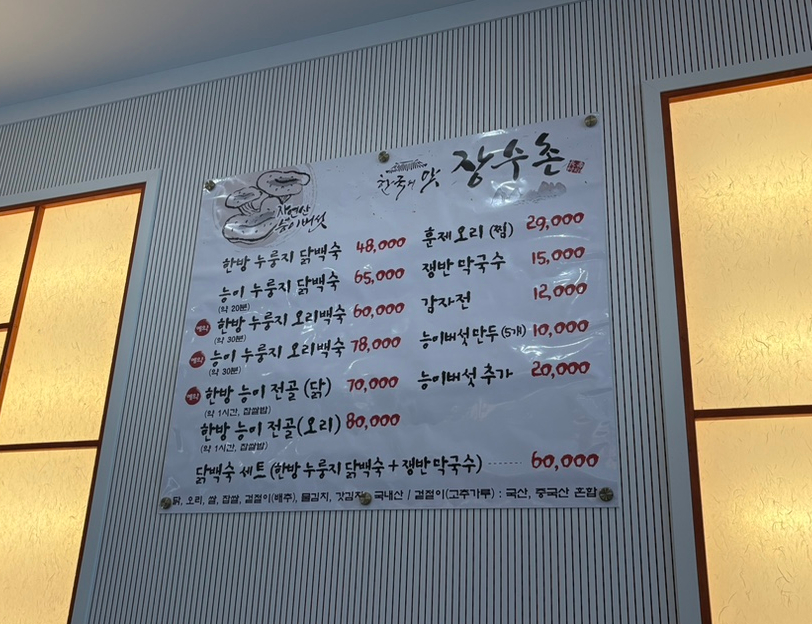 자연산
능이버섯
한국의 맛 장수촌
한방 누룽지 닭백숙 48,000
능이 누룽지 닭백숙 65,000
(약 20분)
예약 한방 누룽지 오리백숙 60,000
(약 30분)
예약 능이 누룽지 오리백숙 78,000
(약 30분)
예약 한방 능이 전골 (닭) 70,000
(약 1시간, 찹쌀밥)
한방 능이 전골(오리) 80,000
(약 1시간, 찹쌀밥)
훈제 오리 (찜) 29,000
쟁반 막국수 15,000
감자전 12,000
능이버섯만두 (5개) 10,000
능이버섯 추가 20,000
닭백숙 세트 (한방 누룽지 닭백숙 + 쟁반 막국수) ------ 60,000
닭, 오리, 쌀, 찹쌀, 겉절이(배추), 물김치, 갓김치 국내산 / 겉절이(고추가루) : 국산, 중국산 혼합